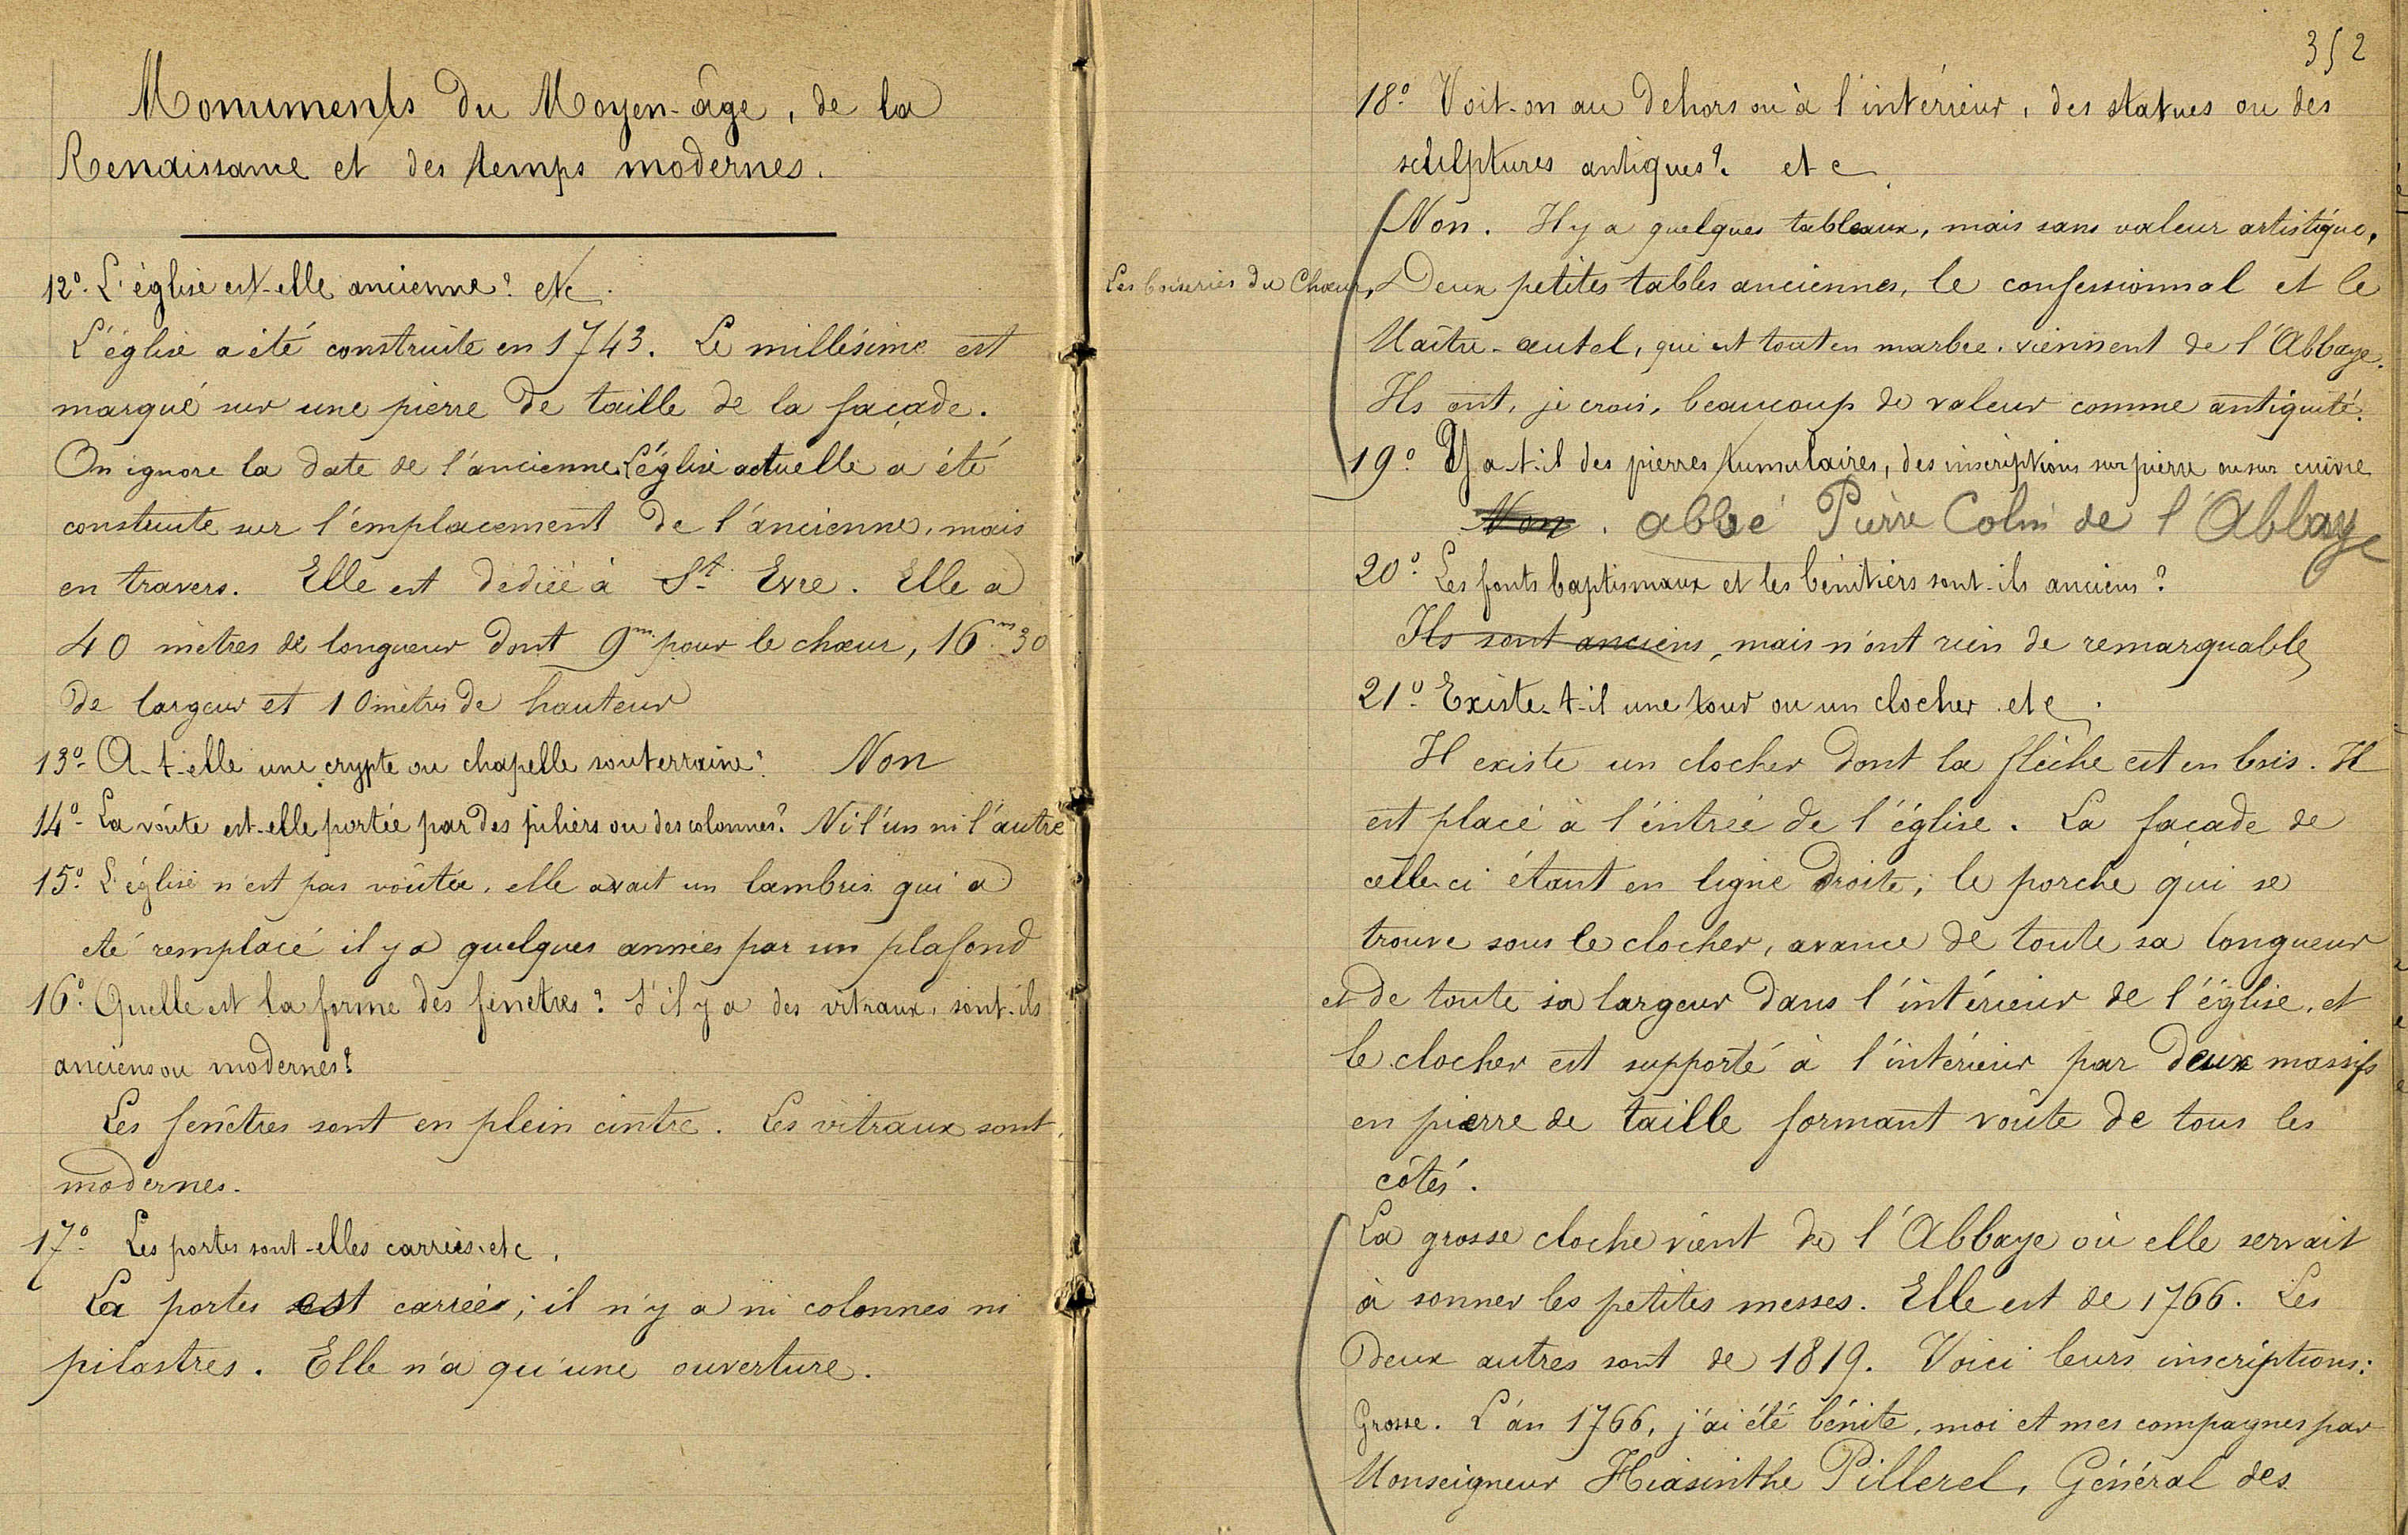 Monuments du Moyen-âge, de la
Renaissance et des temps modernes.
12º. L'église est-elle ancienne? etc.
L'église a été construite en 1743. Le millésime est
marqué sur une pierre de taille de la façade.
On ignore la date de l'ancienne. L'église actuelle a été
construite sur l'emplacement de l'ancienne, mais
en travers. Elle est dédiée à St. Evre. Elle a
40 mètres de longueur dont 9m pour le chœur, 16m.30
de largeur et 10 mètres de hauteur
13º- A-t-elle une crypte ou chapelle souterraine? Non
14º- La voûte est-elle portée par des piliers ou des colonnes? Ni l'un ni l'autre
15º. L'église n'est pas voûtée, elle avait un lambris qui a
été remplacé il y a quelques années par un plafond
16º. Quelle est la forme des fenêtres? S'il y a des vitraux, sont-ils
anciens ou modernes?
Les fenêtres sont en plein cintre. Les vitraux sont
modernes.
17º- Les portes sont-elles carrées. etc.
La portes est carrée; il n'y a ni colonnes ni
pilastres. Elle n'a qu'une ouverture.
352
18º. Voit-on au dehors ou à l'intérieur, des statues ou des
sculptures antiques? etc.
Non. Il y a quelques tableaux, mais sans valeur artistique.
Les boiseries du Chœur, Deux petites tables anciennes, le confessionnal et le
Maître-autel, qui est tout en marbre, viennent de l'Abbaye.
Ils ont, je crois, beaucoup de valeur comme antiquité.
19º. Y a-t-il des pierres tumulaires, des inscriptions sur pierre ou sur cuivre
Non. abbé Pierre Colin de l'Abbaye
20º. Les fonts baptismaux et les bénitiers sont-ils anciens?
Ils sont anciens, mais n'ont rien de remarquable
21º. Existe-t-il une tour ou un clocher etc.
Il existe un clocher dont la flèche est en bois. Il
est placé à l'entrée de l'église. La façade de
celle-ci étant en ligne droite, le porche qui se
trouve sous le clocher, avance de toute sa longueur
et de toute sa largeur dans l'intérieur de l'église, et
le clocher est supporté à l'intérieur par deux massifs
en pierre de taille formant voûte de tous les
côtés.
La grosse cloche vient de l'Abbaye où elle servait
à sonner les petites messes. Elle est de 1766. Les
deux autres sont de 1819. Voici leurs inscriptions:
Grosse. L'an 1766, j'ai été bénite, moi et mes compagnes par
Monseigneur Hiasinthe Pillerel, Général des